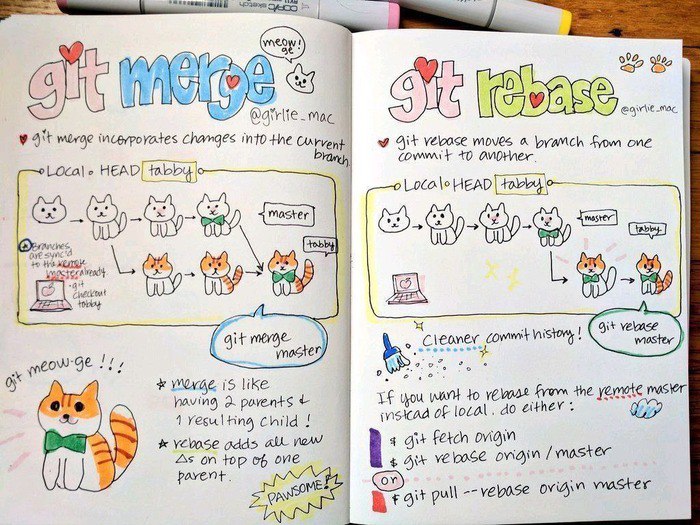 meow!
ge
git merge
@girlie_mac
git merge incorporates changes into the current
branch.
LOCAL HEAD tabby
master
tabby
Branches
are sync'd
to the remote
master already
git
checkout
tabby
git merge
master
git meow-ge !!!
merge is like
having 2 parents &
1 resulting child!
rebase adds all new
Δs on top of one
parent.
PAWSOME!
git rebase
@girlie_mac
git rebase moves a branch from one
commit to another.
LOCAL HEAD tabby
master
tabby
git rebase
master
Cleaner commit history!
If you want to rebase from the remote master
instead of local, do either:
$ git fetch origin
$ git rebase origin/master
or
$ git pull --rebase origin master